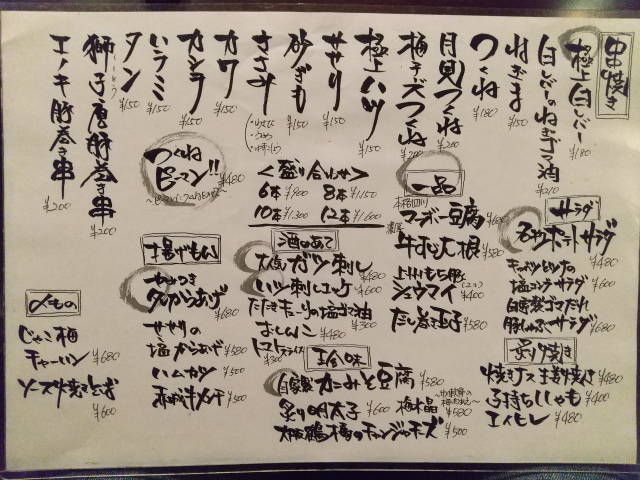 串焼き
極上白レバー ¥180
白レバーのねぎゴマ油 ¥210
ねぎま ¥150
つくね ¥180
月見つくね ¥200
梅チーズつくね ¥200
極上ハツ ¥150
せせり ¥150
砂ぎも ¥150
ささみ ¥150
カワ ¥150
カシラ ¥150
ハラミ ¥150
タン ¥150
獅子唐豚巻き串 ¥200
エノキ豚巻き串 ¥200
つくねピーマン!! ¥480
<盛り合わせ>
6本 ¥900 8本 ¥1,150
10本 ¥1,300 12本 ¥1,600
一品
本格四川
マーボー豆腐 ¥600
牛すじ大根 ¥580
上州もち豚
シュウマイ (2コ) ¥400
だし巻玉子 ¥580
サラダ
名物ポテトサラダ
キャベツとツナの
塩コンブサラダ ¥600
自家製ゴマだれ
豚しゃぶサラダ ¥680
炙り焼き
焼きナス生姜焼き ¥480
子持ちししゃも ¥400
エイヒレ ¥480
酒のあて
大人気ガツ刺し ¥480
ハツ刺しユッケ ¥600
たたきキューリの塩ゴマ油 ¥300
おしんこ ¥480
トマトスライス ¥300
珍味
自家製かにみそ豆腐 ¥580
炙り明太子 ¥600
梅水晶 ¥580
大阪鶴橋のチャンジャチーズ ¥500
揚げもん
やみつき
タレからあげ ¥680
せせりの
塩からあげ ¥580
ハムカツ ¥500
赤城牛メンチ ¥500
〆もの
じゃこ梅
チャーハン ¥680
ソース焼きそば ¥600